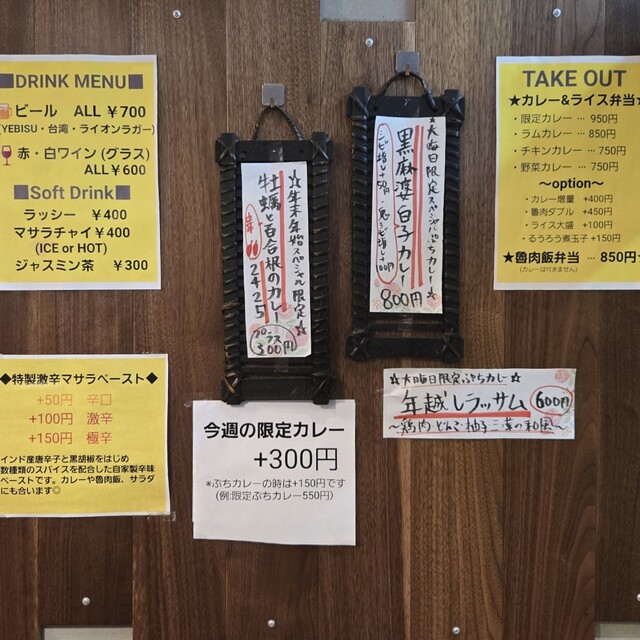 ■DRINK MENU■
ビール ALL ¥700
(YEBISU・台湾・ライオンラガー)
赤・白ワイン (グラス)
ALL¥600
■Soft Drink■
ラッシー ¥400
マサラチャイ¥400
(ICE or HOT)
ジャスミン茶 ¥300
◆特製激辛マサラペースト◆
+50円 辛口
+100円 激辛
+150円 極辛
インド産唐辛子と黒胡椒をはじめ
数種類のスパイスを配合した自家製辛味
ペーストです。カレーや魯肉飯、サラダ
にも合います◎
☆年末年始スペシャル限定☆
牡蠣と百合根のカレー
2425
プラス
300円
今週の限定カレー
+300円
※ぷちカレーの時は+150円です
(例:限定ぷちカレー550円)
☆大晦日限定スペシャルぷちカレー☆
黒麻婆白子カレー
800円
☆大晦日限定ぷちカレー☆
年越しラッサム 600円
TAKE OUT
★カレー&ライス弁当★
・限定カレー … 950円
・ラムカレー … 850円
・チキンカレー … 750円
・野菜カレー … 750円
〜option〜
・カレー増量 +400円
・魯肉ダブル +450円
・ライス大盛 +100円
・るうろう煮玉子 +150円
★魯肉飯弁当 … 850円★
(カレーは付きません)